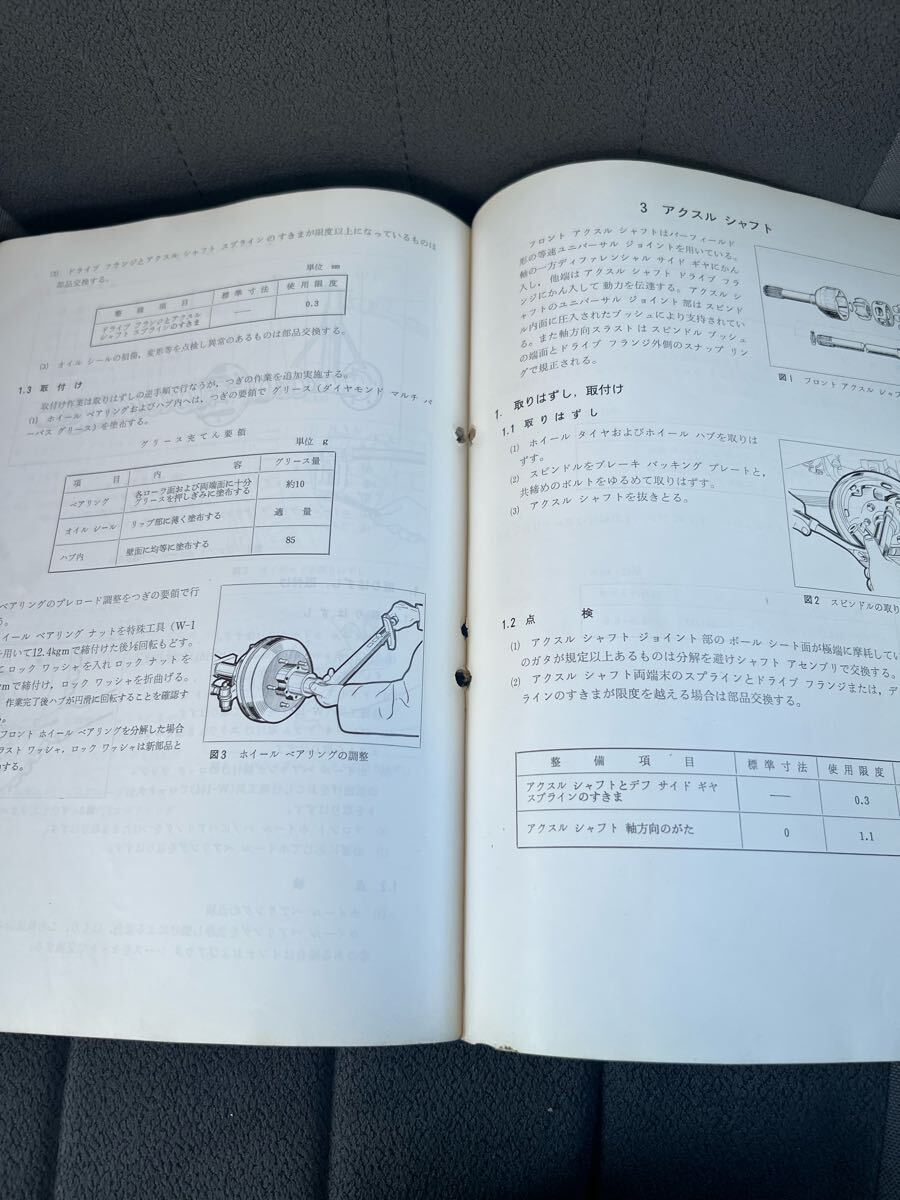 (2) ドライブ フランジとアクスル シャフト スプラインのすきまが限度以上になっているものは
部品交換する。
単位 mm
整 備 項 目 標準寸法 使用限度
ドライブ フランジとアクスル
シャフト スプラインのすきま — 0.3
(3) オイル シールの損傷，変形等を点検し異常のあるものは部品交換する。
1.3 取 付 け
取付け作業は取りはずしの逆手順で行なうが，つぎの作業を追加実施する。
(1) ホイール ベアリングおよびハブ内へは，つぎの要領で グリース（ダイヤモンド マルチ パ
ーパス グリース）を塗布する。
グリース充てん要領
単位 g
項 目 内 容 グリース量
ベアリング 各ローラ面および両端面に十分
グリースを押しぎみに塗布する 約10
オイル シール リップ部に薄く塗布する 適 量
ハブ内 壁面に均等に塗布する 85
ベアリングのプレロード調整をつぎの要領で行
う。
イール ベアリング ナットを特殊工具（W-1
を用いて12.4kgmで締付けた後⅙回転もどす。
ロック ワッシャを入れ ロック ナットを
mで締付け，ロック ワッシャを折曲げる。
作業完了後ハブが円滑に回転することを確認す
フロント ホイール ベアリングを分解した場合
ラスト ワッシャ，ロック ワッシャは新部品と
する。
図3 ホイール ベアリングの調整
3 アクスル シャフト
フロント アクスル シャフトはバーフィールド
形の等速ユニバーサル ジョイントを用いている。
軸の一方ディファレンシャル サイド ギヤにかん
入し，他端は アクスル シャフト ドライブ フラ
ンジにかん入して 動力を伝達する。アクスル シ
ャフトのユニバーサル ジョイント部はスピンド
ル内面に圧入されたブッシュにより支持されてい
る。また軸方向スラスト は スピンドル ブッシュ
の端面とドライブ フランジ外側のスナップ リン
グで規正される。
図1 フロント アクスル シャフ
1. 取りはずし，取付け
1.1 取 り は ず し
(1) ホイール タイヤおよびホイール ハブを取りは
ずす。
(2) スピンドルをブレーキ バッキング プレートと，
共締めのボルトをゆるめて取りはずす。
(3) アクスル シャフトを抜きとる。
図2 スピンドルの取り
1.2 点 検
(1) アクスル シャフト ジョイント 部の ボール シート面が極端に摩耗してい
のガタが規定以上あるものは分解を避けシャフト アセンブリで交換する。
(2) アクスル シャフト両端末のスプラインとドライブ フランジまたは，デ
ラインのすきまが限度を越える場合は部品交換する。
整 備 項 目 標準寸法 使用限度
アクスル シャフトとデフ サイド ギヤ
スプラインのすきま — 0.3
アクスル シャフト 軸方向のがた 0 1.1